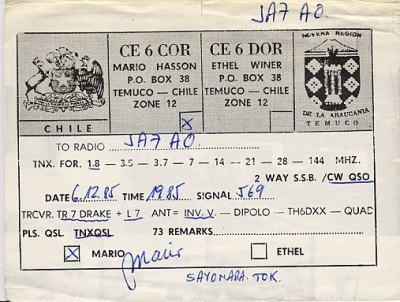 JA7AO.
CE 6 COR
MARIO HASSON
P.O. BOX 38
TEMUCO — CHILE
ZONE 12
CE 6 DOR
ETHEL WINER
P.O. BOX 38
TEMUCO — CHILE
ZONE 12
NOVENA REGION
DE LA ARAUCANIA
TEMUCO
CHILE
X
TO RADIO JA7AO.
TNX. FOR. 1.8 — 3.5 — 3.7 — 7 — 14 — 21 — 28 — 144 MHZ.
2 WAY S.S.B. /CW QSO
DATE 6.12.85 TIME 1985 SIGNAL 569
TRCVR. TR 7 DRAKE + L 7 ANT = INV. V — DIPOLO — TH6DXX — QUAD
PLS. QSL TNXQSL 73 REMARKS
X MARIO ETHEL
Mario
SAYONARA. TOK.